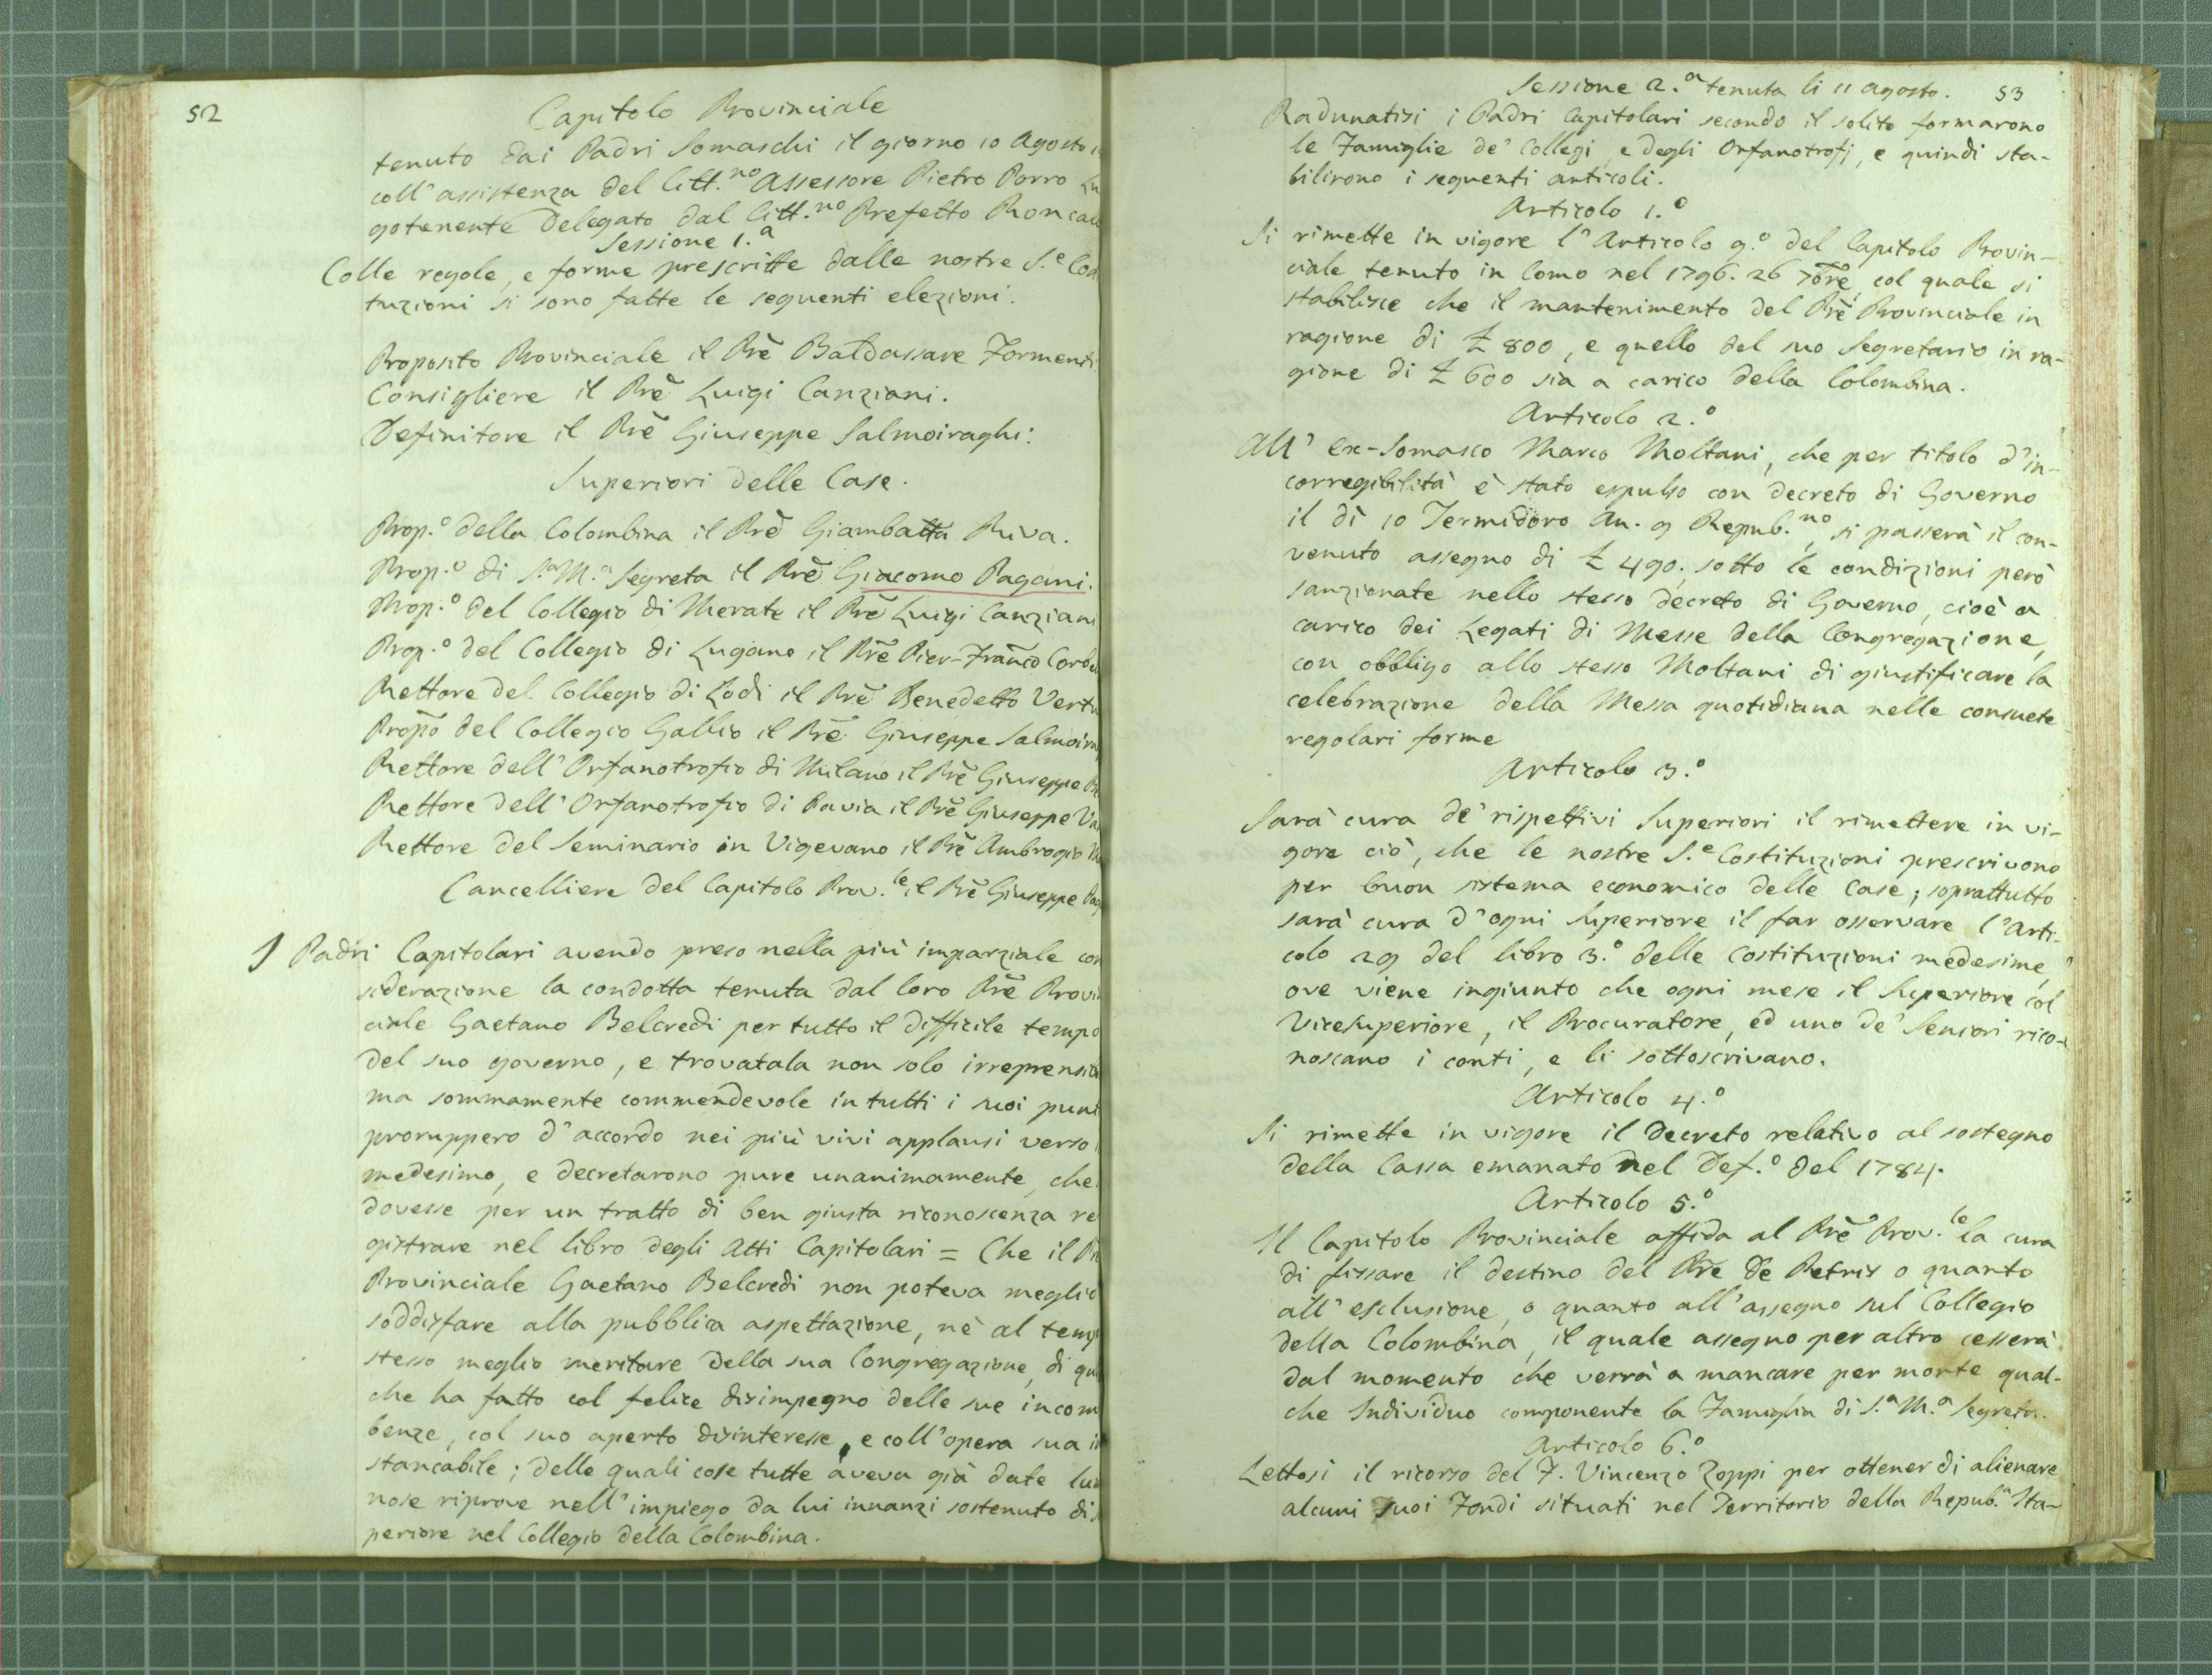 52
Capitolo Provinciale
tenuto dai Padri Somaschi il giorno 10 Agosto
coll' assistenza del Citt.no Assessore Pietro Porro Lu
gotenente Delegato dal Citt.no Prefetto Roncal
Sessione 1.a
Colle regole, e forme prescritte dalle nostre S.e Cos
tuzioni si sono fatte le seguenti elezioni.
Proposito Provinciale il Prē Baldassare Formenti
Consigliere il Prē Luigi Canziani.
Definitore il Prē Giuseppe Salmoiraghi:
Superiori delle Case.
Prop.o della Colombina il Prē Giambatta Riva.
Prop.o di S.a M.a Segreta il Prē Giacomo Pagani.
Prop.o del Collegio di Merate il Prē Luigi Canziani
Prop.o del Collegio di Lugano il Prē Pier-Franco Corbe
Rettore del Collegio di Lodi il Prē Benedetto Vertu
Propō del Collegio Gallio il Prē Giuseppe Salmoira
Rettore dell' Orfanotrofio di Milano il Prē Giuseppe
Rettore dell' Orfanotrofio di Pavia il Prē Giuseppe Va
Rettore del Seminario in Vigevano il Prē Ambrogio
Cancelliere del Capitolo Prov.le il Prē Giuseppe Pag
I Padri Capitolari avendo preso nella più imparziale con
siderazione la condotta tenuta dal loro Prē Provi
ciale Gaetano Belcredi per tutto il difficile tempo
del suo governo, e trovatala non solo irreprensib
ma sommamente commendevole in tutti i suoi punt
proruppero d'accordo nei più vivi applausi verso
medesimo, e decretarono pure unanimamente, che
dovesse per un tratto di ben giusta riconoscenza re
gistrare nel libro degli Atti Capitolari = Che il Pr
Provinciale Gaetano Belcredi non poteva meglio
soddisfare alla pubblica aspettazione, nè al temp
stesso meglio meritare della sua Congregazione, di qu
che ha fatto col felice disimpegno delle sue incom
benze, col suo aperto disinteresse, e coll' opera sua in
stancabile; delle quali cose tutte aveva già date lum
nose riprove nell' impiego da lui innanzi sostenuto di s
periore nel Collegio della Colombina.
Sessione 2.a tenuta li 11 Agosto. 53
Radunatisi i Padri Capitolari secondo il solito formarono
le Famiglie de' Collegi, e degli Orfanotrofj, e quindi sta-
bilirono i seguenti articoli.
Articolo 1.o
Si rimette in vigore l'Articolo 9.o del Capitolo Provin-
ciale tenuto in Como nel 1796. 26 7bre, col quale si
stabilisce che il mantenimento del Prē Provinciale in
ragione di £ 800, e quello del suo Segretario in ra-
gione di £ 600 sia a carico della Colombina.
Articolo 2.o
All' ex-Somasco Marco Moltani, che per titolo d'in-
corregibilità è stato espulso con decreto di Governo
il dì 10 Termidoro An. 9 Repub.no, si passerà il con-
venuto assegno di £ 490. sotto le condizioni però
sanzionate nello stesso decreto di Governo, cioè a
carico dei Legati di Messe della Congregazione,
con obbligo allo stesso Moltani di giustificare la
celebrazione della Messa quotidiana nelle consuete
regolari forme
Articolo 3.o
Sarà cura de' rispettivi Superiori il rimettere in vi-
gore ciò, che le nostre S.e Costituzioni prescrivono
per buon sistema economico delle Case; soprattutto
sarà cura d'ogni Superiore il far osservare l'Arti-
colo 29 del libro 3.o delle Costituzioni medesime,
ove viene ingiunto che ogni mese il Superiore col
Vicesuperiore, il Procuratore, ed uno de' Seniori rico-
noscano i conti, e li sottoscrivano.
Articolo 4.o
Si rimette in vigore il Decreto relativo al sostegno
della Cassa emanato nel Def.o del 1784.
Articolo 5.o
Il Capitolo Provinciale affida al Prē Prov.le la cura
di fissare il destino del Prē De Petris o quanto
all' esclusione, o quanto all'assegno sul Collegio
della Colombina, il quale assegno per altro cesserà
dal momento che verrà a mancare per morte qual-
che Individuo componente la Famiglia di S.a M.a Segreta.
Articolo 6.o
Lettosi il ricorso del F. Vincenzo Zoppi per ottener di alienare
alcuni suoi Fondi situati nel Territorio della Repub.a Ita-